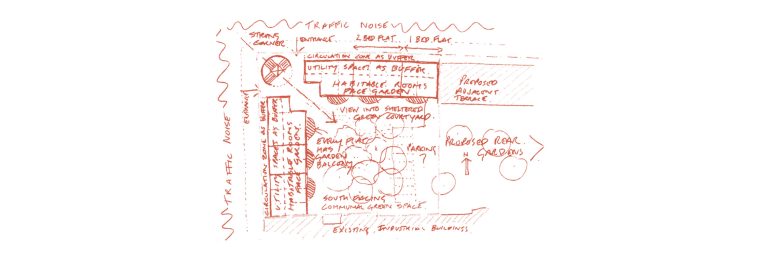 TRAFFIC NOISE
STRONG
CORNER
ENTRANCE
2 BED FLAT.
1 BED FLAT.
CIRCULATION ZONE AS BUFFER
UTILITY SPACES AS BUFFER.
HABITABLE ROOMS
FACE GARDEN.
PROPOSED
ADJACENT
TERRACE.
VIEW INTO SHELTERED
GREEN COURTYARD.
TRAFFIC NOISE
CIRCULATION ZONE AS BUFFER
UTILITY SPACES AS BUFFER
HABITABLE ROOMS
FACE GARDEN.
EVERY FLAT
HAS
GARDEN
BALCONY
PARKING
PROPOSED REAR
GARDENS
N
SOUTH FACING
COMMUNAL GREEN SPACE.
EXISTING INDUSTRIAL BUILDINGS